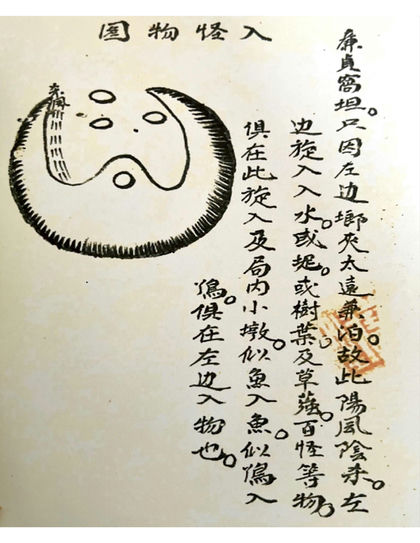 入怪物圖
廉貞窩坦。只因左边塝夾太遠兼泊。故此陽風陰杀。左
边旋入入水。或坭。或樹葉及草。百怪等物。
俱在此旋入及局内小墩。似魚入魚。似入
俱在左边入物也。